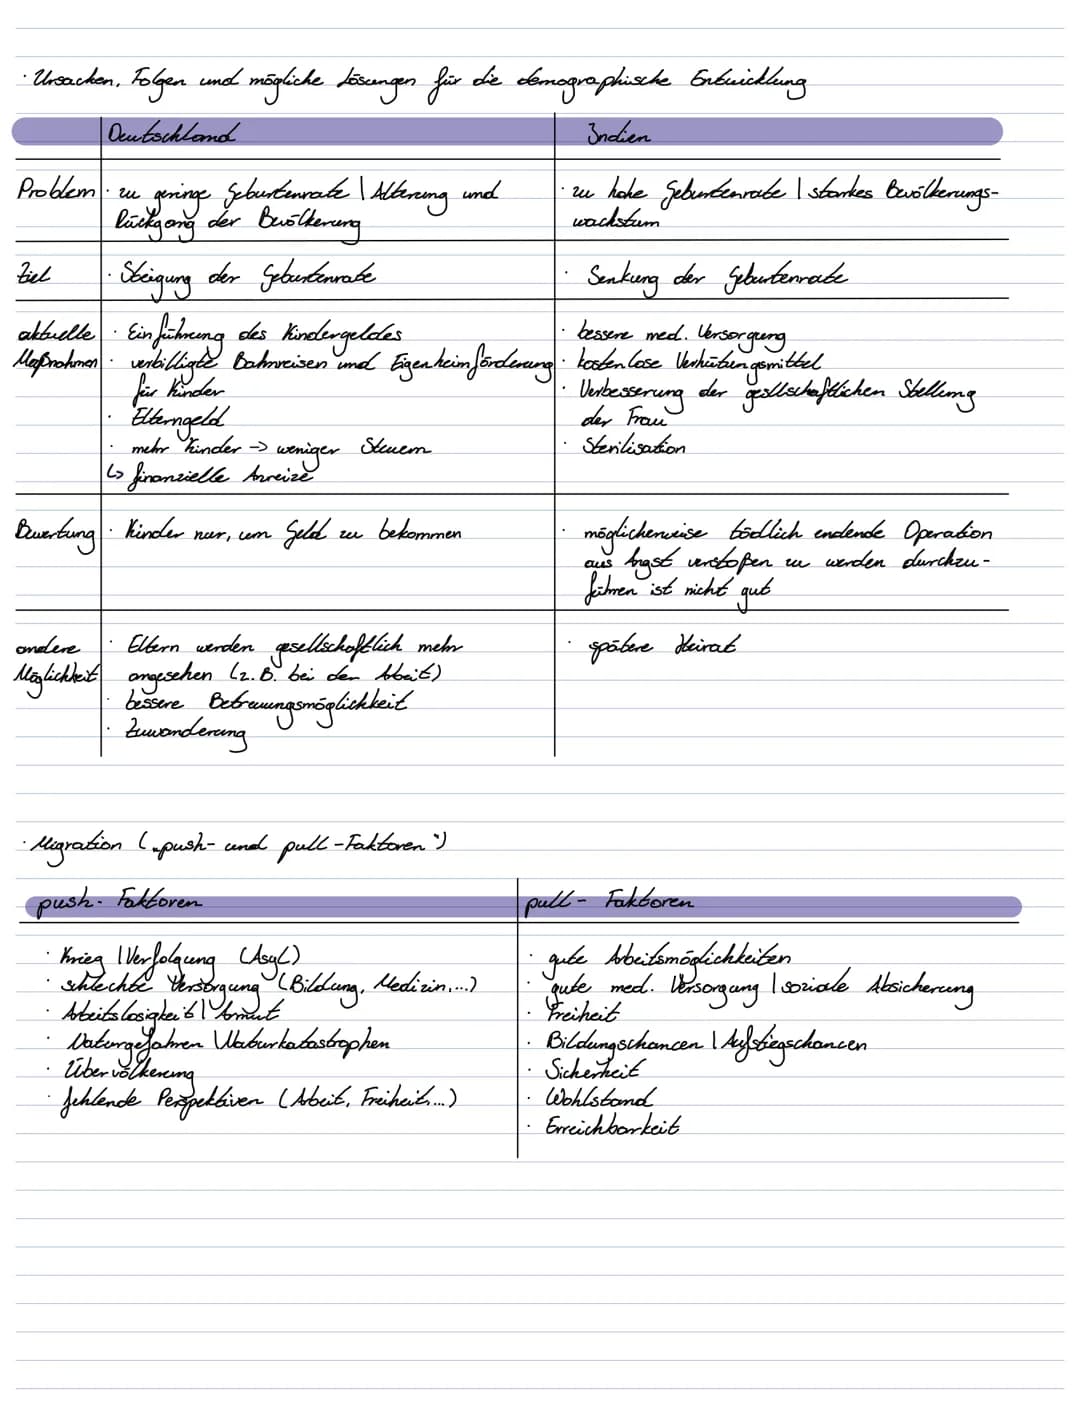 · Ursachen, Folgen und mögliche Lösungen für die demographische Entwicklung
Deutschland
Indien
Problem
· zu geringe Geburtenrate | Alterung und
Rückgang der Bevölkerung
· zu hohe Geburtenrate | starkes Bevölkerungs-
wachstum
Ziel
· Steigung der Geburtenrate
· Senkung der Geburtenrate
aktuelle
Maßnahmen
· Einführung des Kindergeldes
· verbilligte Bahnreisen und Eigenheimförderung
für Kinder
· Elterngeld
· mehr Kinder -> weniger Steuern
↳ finanzielle Anreize
· bessere med. Versorgung
· kostenlose Verhütungsmittel
· Verbesserung der gesllschaftlichen Stellung
der Frau
· Sterilisation
Bewertung
· Kinder nur, um Geld zu bekommen
· möglicherweise tödlich endende Operation
aus Angst verstoßen zu werden durchzu-
führen ist nicht gut
andere
Möglichkeit
· Eltern werden gesellschaftlich mehr
angesehen (z.B. bei der Arbeit)
· bessere Betreuungsmöglichkeit
· Zuwanderung
· spätere Heirat
· Migration („push- und pull-Faktoren")
push- Faktoren
pull- Faktoren
· Krieg | Verfolgung (Asyl)
· schlechte Versorgung (Bildung, Medizin,...)
· Arbeitslosigkeit | Armut
· Naturgefahren \ Naturkatastrophen
· Übervölkerung
· fehlende Perspektiven (Arbeit, Freiheit,...)
· gute Arbeitsmöglichkeiten
· gute med. Versorgung | soziale Absicherung
· Freiheit
· Bildungschancen | Aufstiegschancen
· Sicherheit
· Wohlstand
· Erreichbarkeit